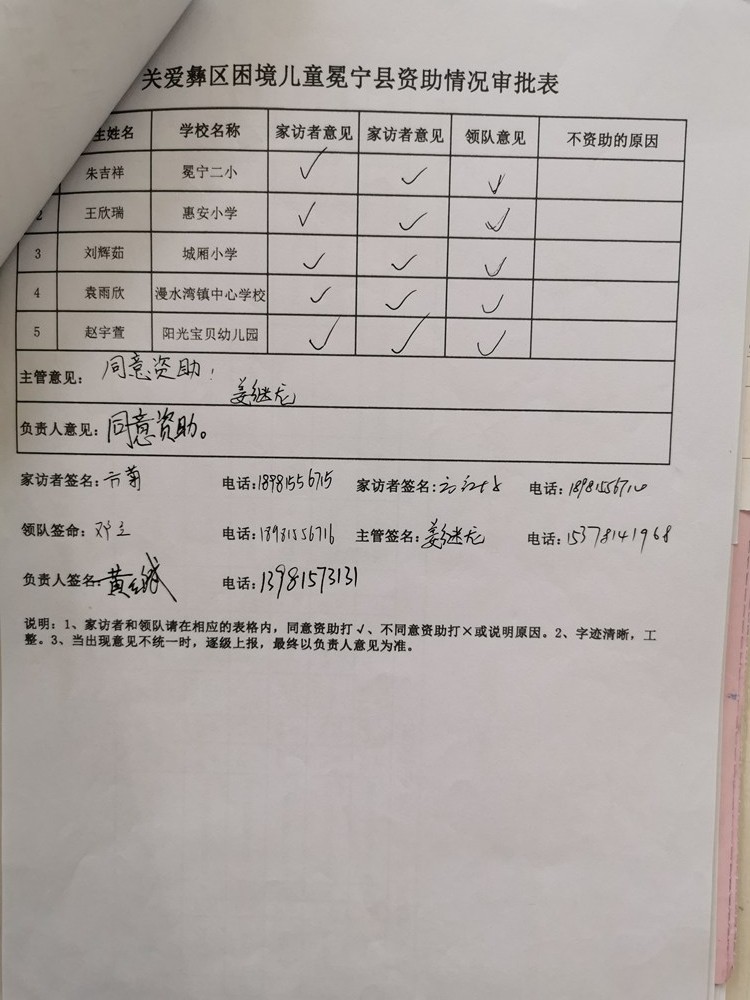 关爱彝区困境儿童冕宁县资助情况审批表
生姓名 学校名称 家访者意见 家访者意见 领队意见 不资助的原因
朱吉祥 冕宁二小 ✓ ✓ ✓
2 王欣瑞 惠安小学 ✓ ✓ ✓
3 刘辉茹 城厢小学 ✓ ✓ ✓
4 袁雨欣 漫水湾镇中心学校 ✓ ✓ ✓
5 赵宇萱 阳光宝贝幼儿园 ✓ ✓ ✓
主管意见: 同意资助! 姜继龙
负责人意见: 同意资助。
家访者签名: 方菊 电话:18981556715 家访者签名: 电话:
领队签命: 邓立 电话:18981556716 主管签名: 姜继龙 电话:15378141968
负责人签名: 电话:13981573131
说明:1、家访者和领队请在相应的表格内,同意资助打√、不同意资助打×或说明原因。2、字迹清晰,工
整。3、当出现意见不统一时,逐级上报,最终以负责人意见为准。